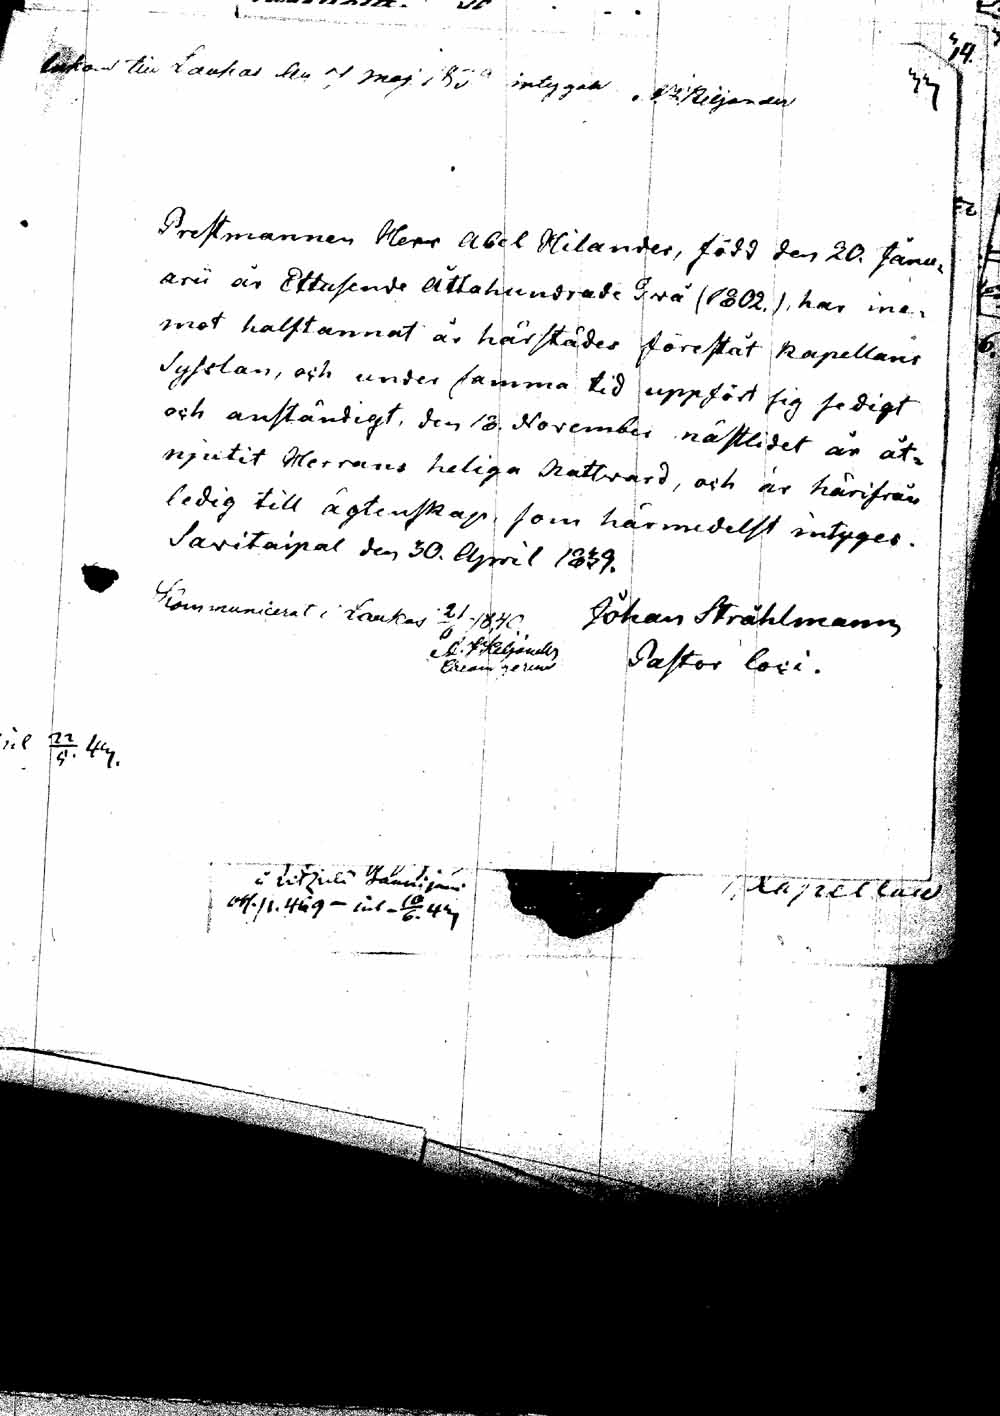 14.
till Laukas den 7 maj 1839 intygar Kiljander
Prestmannen Herr Abel Hilander, född den 20. Janu=
arii år Ettusende Åttahundrade Två (1802.), har ine=
mot halftannat år härstädes förestått Kapellans
Sysslan, och under samma tid uppfört sig sedigt
och anständigt, den 18. November nästlidet år åt=
njutit Herrans heliga Nattvard, och är härifrån
ledig till ägtenskap, som härmedelst intyges.
Savitaipal den 30. April 1839.
Johan Strählmann
Pastor loci.
Kommunicerat i Laukas 21 1840
Kiljander
22
5. 47.
Kapellan